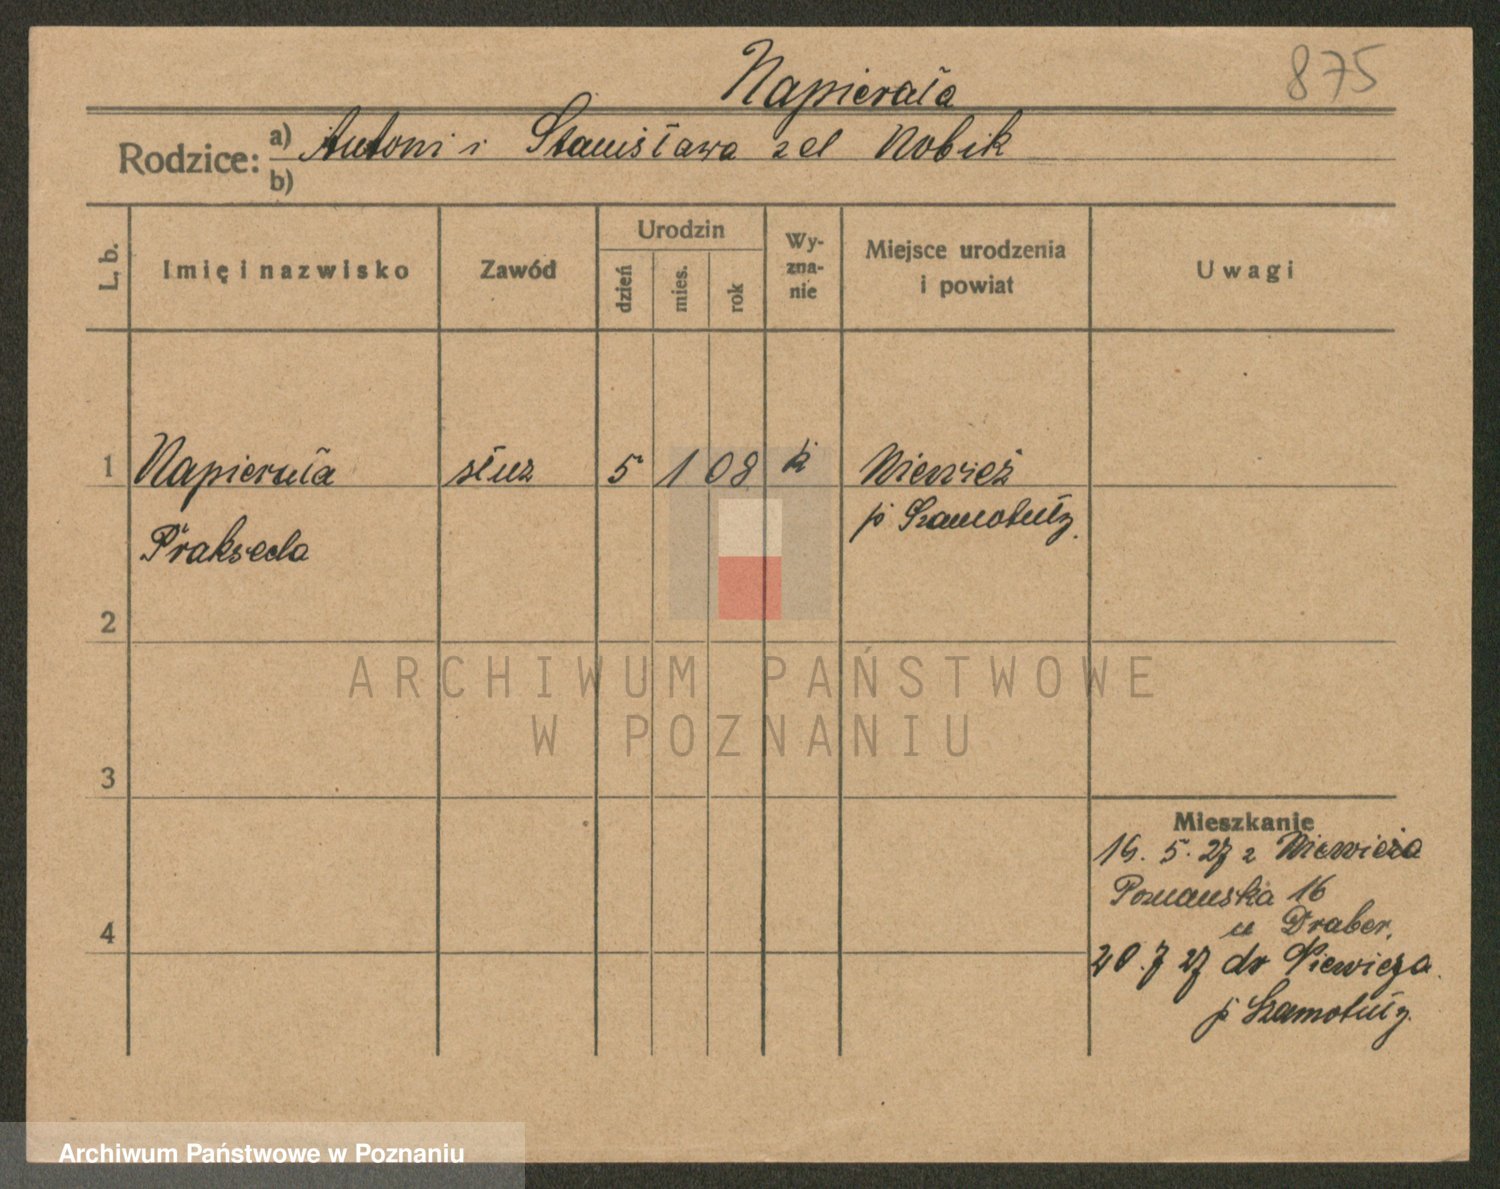 875
Napierała
Rodzice: a) Antoni i Stanisława zd Nobik
b)
L. b. Imię i nazwisko Zawód Urodzin dzień mies. rok Wyznanie Miejsce urodzenia i powiat Uwagi
1 Napierała służ 5 1 08 k Niewierz
Prakseda p Szamotuły.
2
3
4
Mieszkanie
16. 5. 27 z Niewierza
Poznańska 16
u Draber.
20. 7 27 do Niewierza.
p Szamotuły.
ARCHIWUM PAŃSTWOWE
W POZNANIU
Archiwum Państwowe w Poznaniu